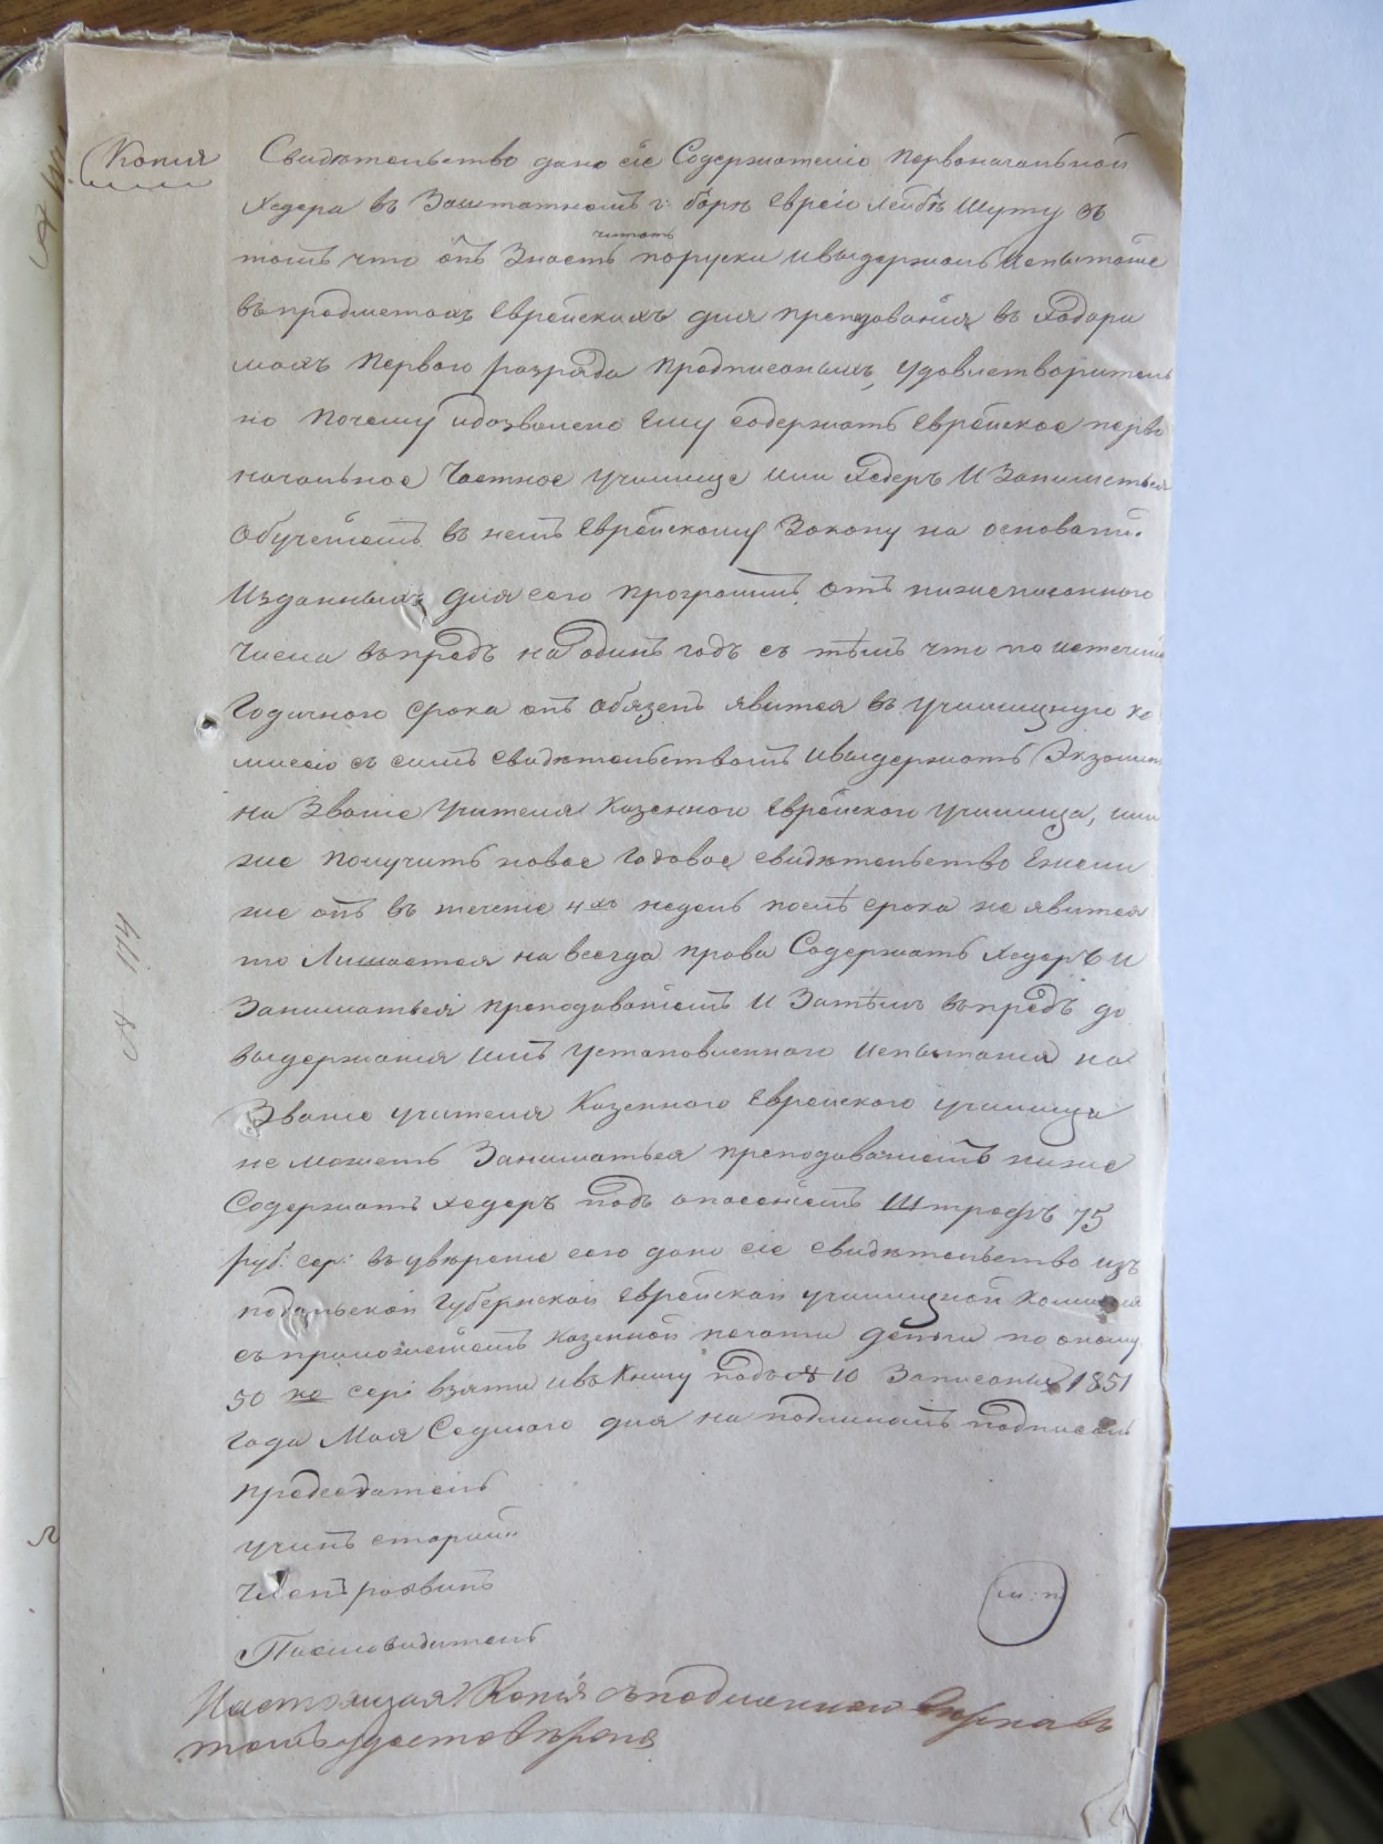 Копия
Свидѣтельство дано сіе Содержателю первоначальной
хедера въ Заштатномъ г: барѣ Еврею Лейбѣ Шуту въ
читать
томъ что онъ Знаетъ поруски ивыдержалъ Испытаніе
въпредметахъ Еврейскихъ для преподаванія въ
махъ первого разряда предписаныхъ, удовлетворитель
но почему идозволено Ему содержать Еврейское перво
начальное Частное училище или хедеръ И Заниматься
Обученіемъ въ немъ Еврейскому Закону на основаніи
Изданныхъ для сего програмъ отъ нижеписанного
Числа въпредъ на одинъ годъ съ тѣмъ что по истеченіи
Годичного срока онъ обязенъ явится въ училищную ко
мисію съ симъ свидѣтельствомъ ивыдержать Экзаминъ
на Званіе учителя Казенного Еврейского училища, или
же получить новое Годовое свидѣтельство Ежели
же онъ въ теченіе 4хъ недель послѣ срока не явится
то Лишается на всегда права Содержать хедеръ и
Заниматься преподаваніемъ И Затѣмъ въпредъ до
выдержанія имъ установленного испытанія на
Званіе учителя Казенного Еврейского училища
не можетъ Заниматься преподаваніемъ ниже
Содержать хедеръ подъ опасеніемъ Штрафъ 75
руб: сер: въ увѣреніе сего дано сіе свидѣтельство изъ
подольской Губернской Еврейской училищной Комисіи
съприложеніемъ казенной печати деньги по оному
50 ко сер: взяти ивъ Книгу подъ № 10 Записаны 1851
года Мая Седмого дня на подлиномъ подписали
председатель
учит: старший
Членъ равинъ
Писмоводитель
м: п
Настоящая Копія съподленною верна въ
томъ удостоверяю
№ 114